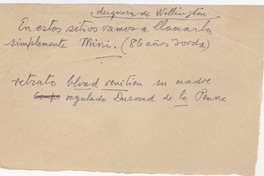 duquesa de Wellington
En estos sitios vamos a llamarla
simplemente Mimi. (86 años sorda)
retrato blond venitien su madre
regalado Durand de la Penne